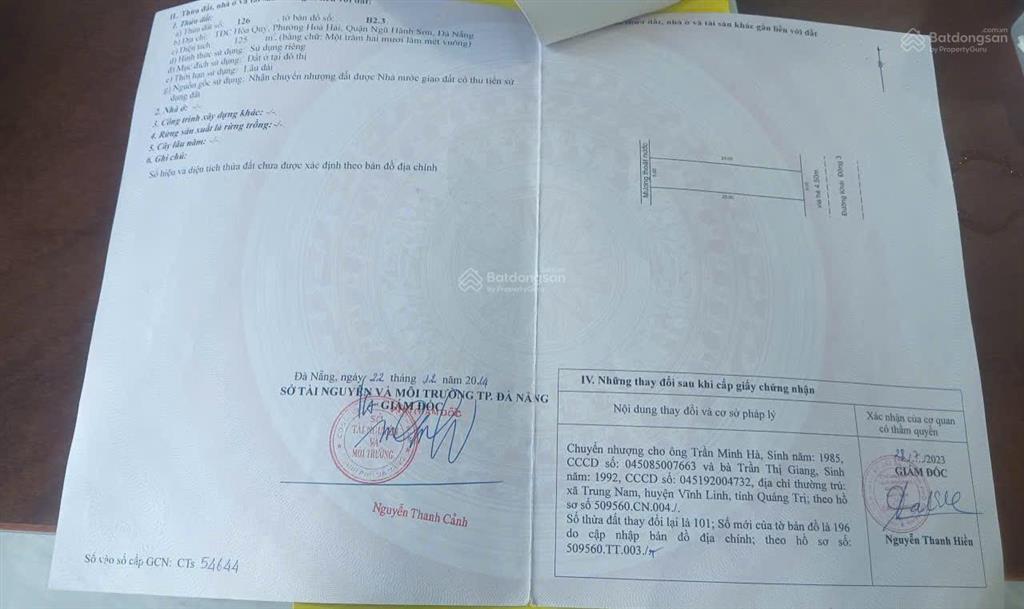 II. Thửa đất, nhà ở và
1. Thửa đất:
a) Thửa đất số: 126 tờ bản đồ số: B2.3
b) Địa chỉ: TĐC Hòa Quý, Phường Hoà Hải, Quận Ngũ Hành Sơn, Đà Nẵng
c) Diện tích 125 m². (bằng chữ: Một trăm hai mươi lăm mét vuông)
d) Hình thức sử dụng: Sử dụng riêng
đ) Mục đích sử dụng: Đất ở tại đô thị
e) Thời hạn sử dụng: Lâu dài
g) Nguồn gốc sử dụng: Nhận chuyển nhượng đất được Nhà nước giao đất có thu tiền sử
dụng đất
2. Nhà ở: -/-
3. Công trình xây dựng khác: -/-
4. Rừng sản xuất là rừng trồng: -/-
5. Cây lâu năm: -/-
6. Ghi chú:
Số hiệu và diện tích thửa đất chưa được xác định theo bản đồ địa chính
Đà Nẵng, ngày 22 tháng 12 năm 2014
SỞ TÀI NGUYÊN VÀ MÔI TRƯỜNG TP. ĐÀ NẴNG
GIÁM ĐỐC
SỞ
TÀI NGUYÊN
VÀ
MÔI TRƯỜNG
Nguyễn Thanh Cảnh
Số vào sổ cấp GCN: CTs 54644
thửa đất, nhà ở và tài sản khác gắn liền với đất
Batdongsan.com.vn
by PropertyGuru
Mương thoát nước
5.00
25.00
25.00
5.00
Vỉa hè 4.50m
Đường Khái Đông 3
Batdongsan.com.vn
by PropertyGuru
IV. Những thay đổi sau khi cấp giấy chứng nhận
Nội dung thay đổi và cơ sở pháp lý
Xác nhận của cơ quan
có thẩm quyền
Chuyển nhượng cho ông Trần Minh Hà, Sinh năm: 1985,
CCCD số: 045085007663 và bà Trần Thị Giang, Sinh
năm: 1992, CCCD số: 045192004732, địa chỉ thường trú:
xã Trung Nam, huyện Vĩnh Linh, tỉnh Quảng Trị; theo hồ
sơ số 509560.CN.004./.
Số thửa đất thay đổi lại là 101; Số mới của tờ bản đồ là 196
do cập nhập bản đồ địa chính; theo hồ sơ số:
509560.TT.003./.
/2023
GIÁM ĐỐC
Nguyễn Thanh Hiền